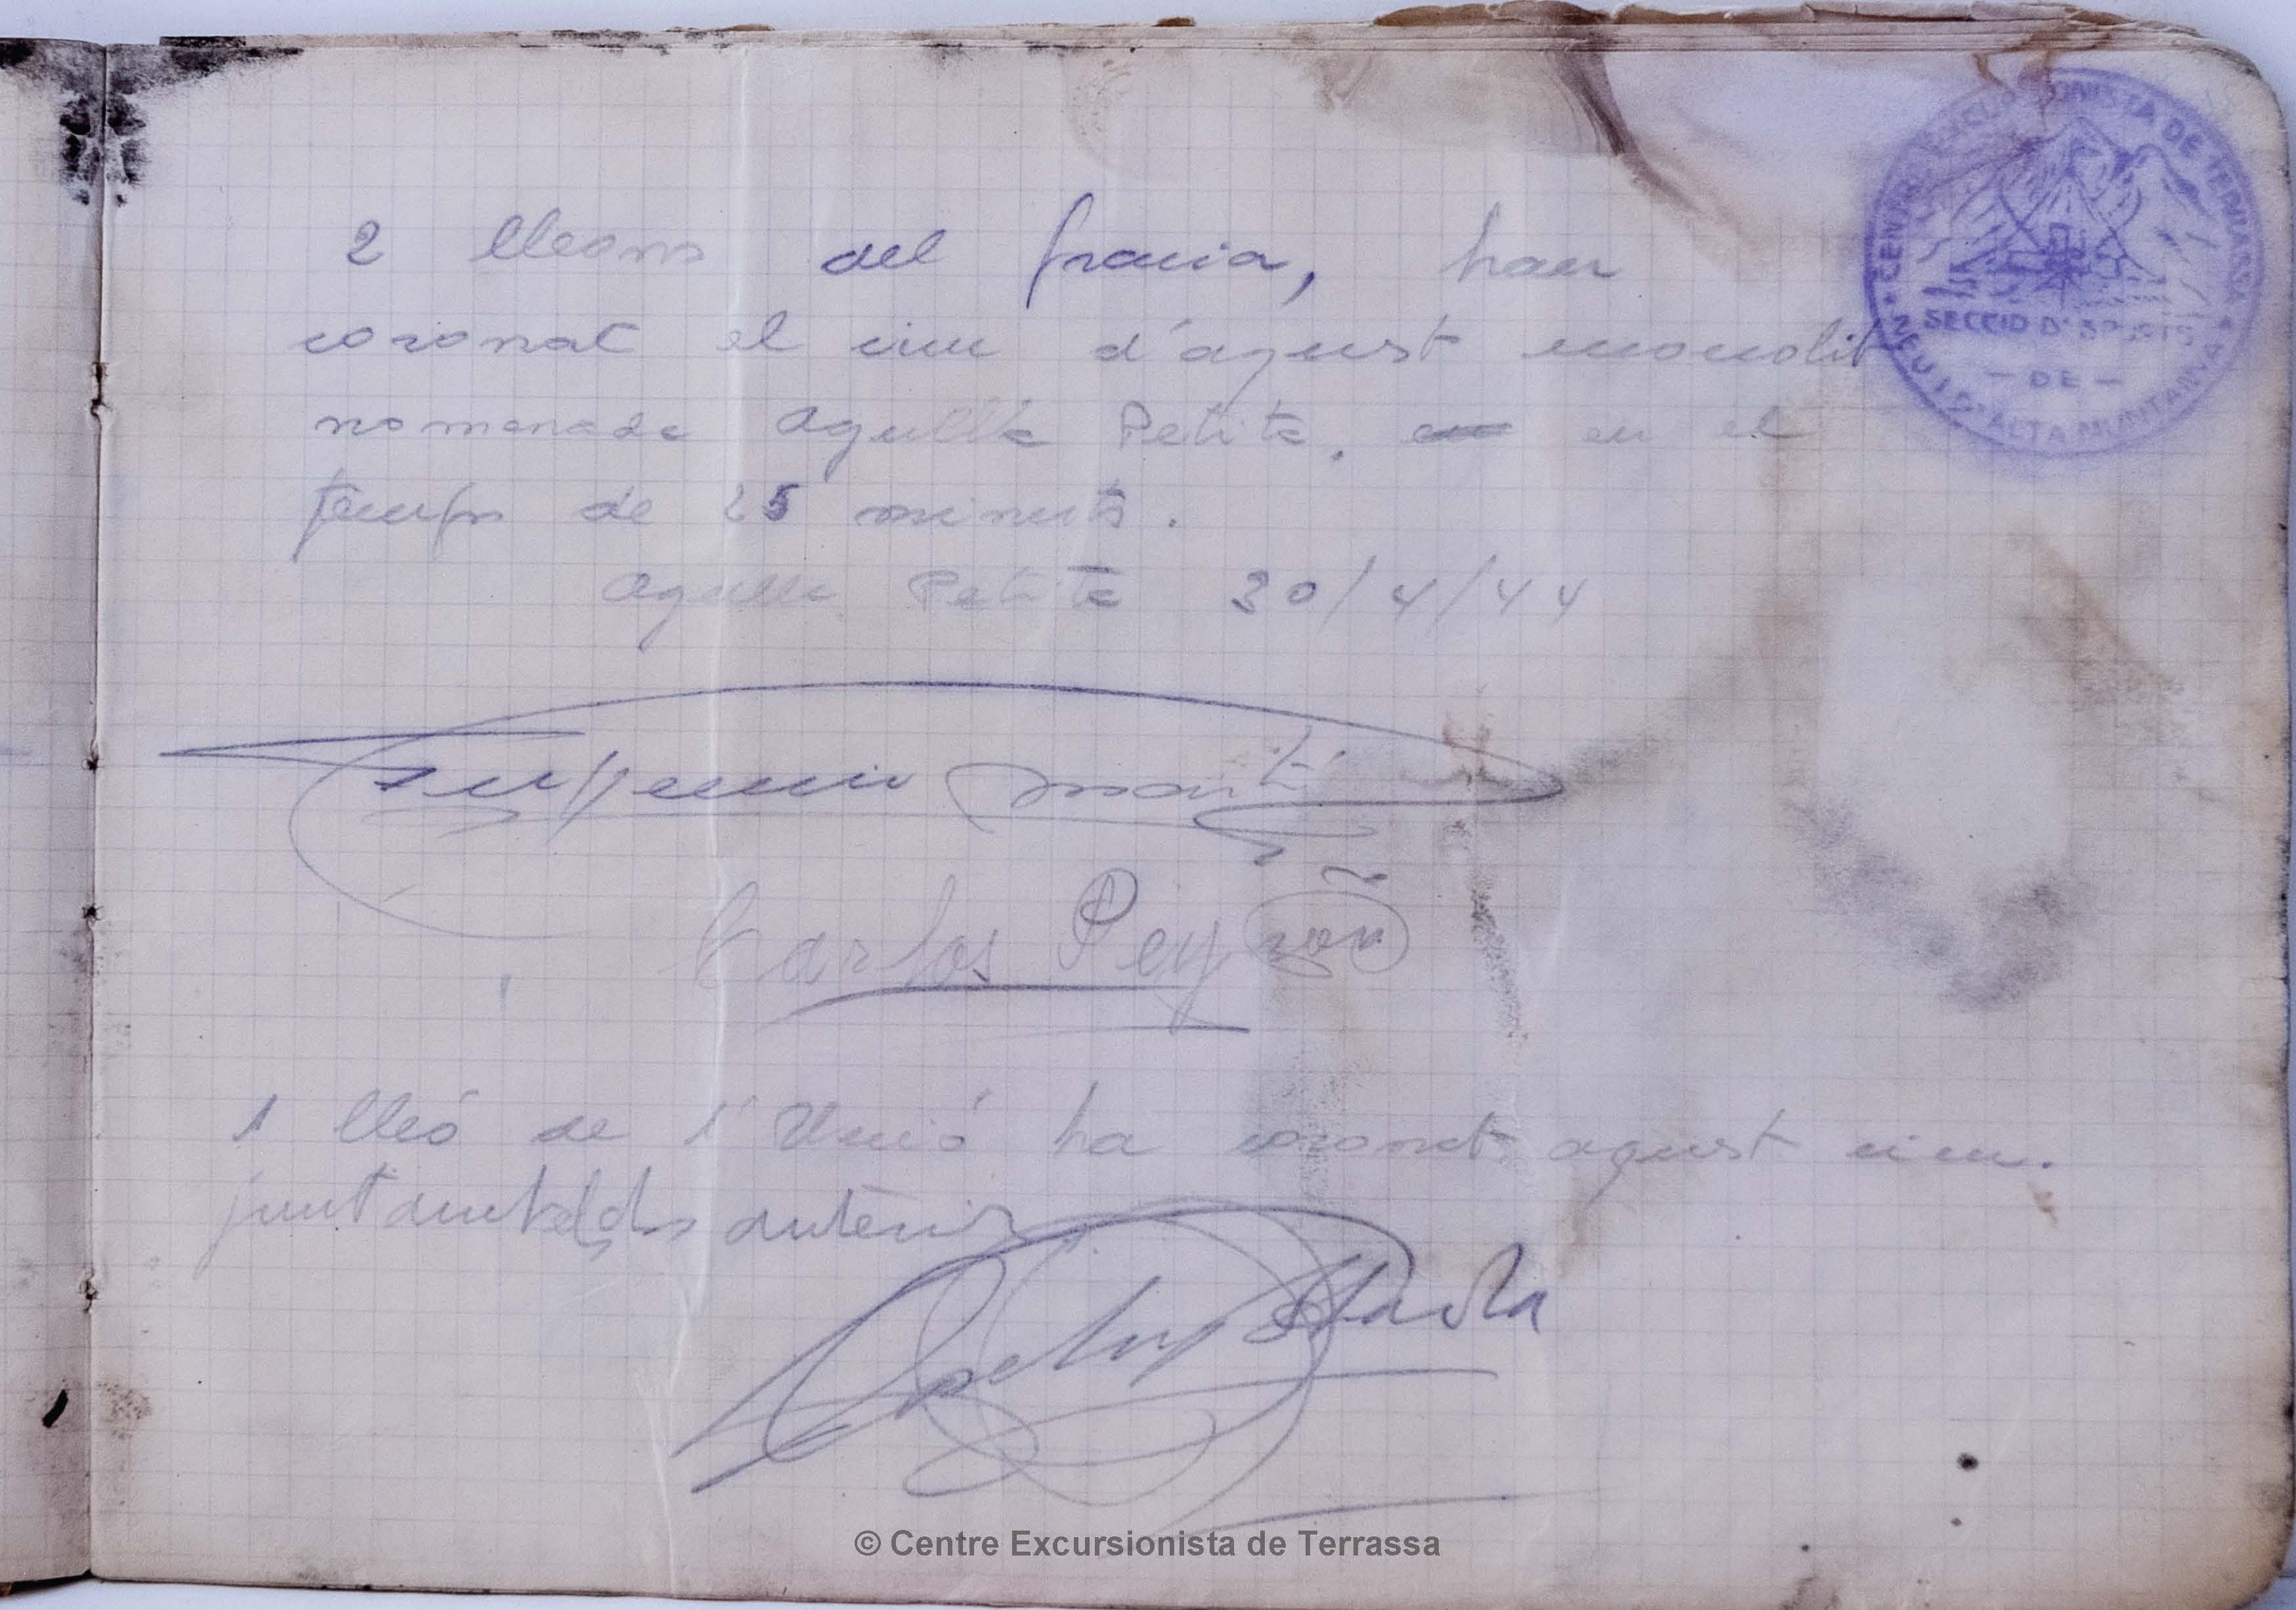 2 lleons del gracia, han
coronat el cim d'aquest monolit
nomenada Agulla Petita, en el
temps de 25 minuts.
Agulla Petita 30/4/44
Martí
Carlos Pey
1 lleó de l'Unió ha coronat aquest cim.
juntament anteriors
CENTRE EXCURSIONISTA DE TERRASSA
SECCIO D'ESPORTS
— DE —
NEU I D'ALTA MUNTANYA
© Centre Excursionista de Terrassa